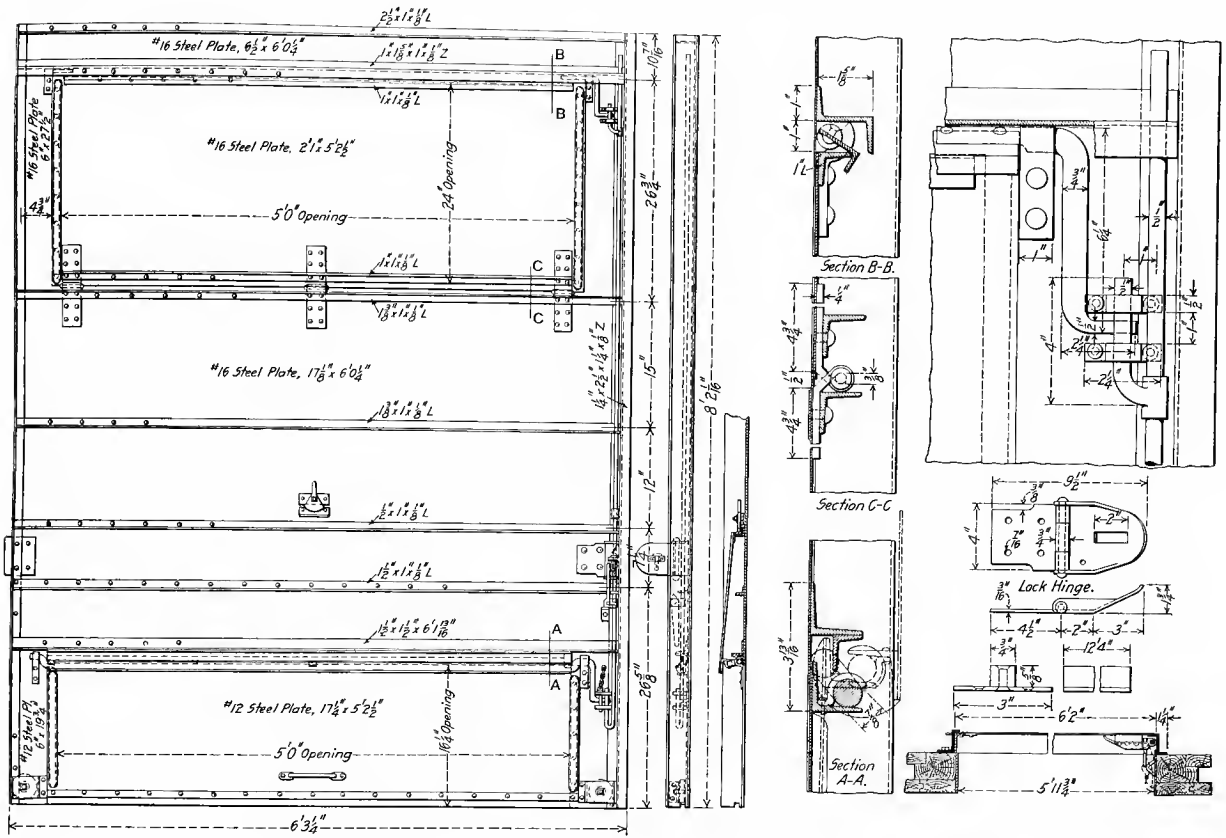 2½"x1"x⅛" L
#16 Steel Plate, 6½" x 6'0¼"
1"x1⅝"x1"x⅛" Z
B
B
1"x1"x⅛" L
#16 Steel Plate
6" x 27½"
#16 Steel Plate, 2'1" x 5'2½"
24" Opening
4¾"
5'0" Opening
1"x1"x⅛" L
C
C
1⅜"x1"x⅛" L
#16 Steel Plate, 17⅛" x 6'0¼"
1¼"x2½"x1¼"x⅛" Z
1⅜"x1"x⅛" L
1½"x1"x⅛" L
1½"x1"x⅛" L
1½"x1½"x6'1 13/16"
A
A
#12 Steel Pl.
6" x 19¾"
#12 Steel Plate, 17¼" x 5'2½"
16¼" Opening
5'0" Opening
6'3¼"
10 7/16"
26¾"
15"
12"
26⅝"
8'2 1/16"
1⅝"
1"
1"
1"L
Section B-B.
¼"
4¾"
1½"
⅜"
4¾"
Section C-C
3 13/16"
Section
A-A.
¾"
6¼"
½"
1"
1"
½"
1"
4"
2¼"
2¼"
9½"
⅜"
4"
7/16"
¾"
2"
Lock Hinge.
3/16"
4½"
2"
3"
¾"
12'4"
⅝"
3"
6'2"
1¼"
5'11¾"